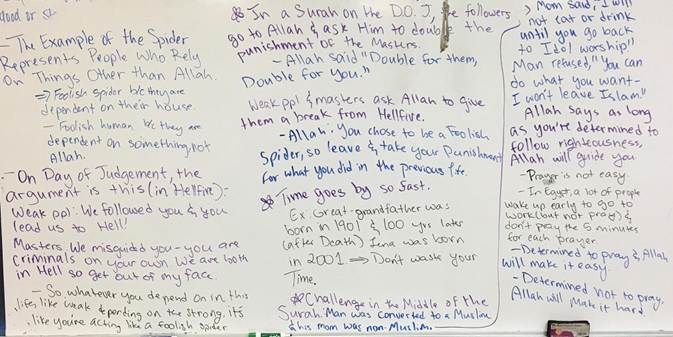 - The Example of the Spider
Represents People Who Rely
On Things Other than Allah.
⇒ Foolish spider b/c they are
dependent on their house.
- Foolish human b/c they are
dependent on something, not
Allah.
- On Day of Judgement, the
argument is this (in Hellfire):-
Weak ppl: We followed you & you
lead us to Hell!
Masters: We misguided you - you are
criminals on your own. We are both
in Hell so get out of my face.
- So whatever you depend on in this
life, like weak depending on the strong, it's
like you're acting like a foolish spider
In a Surah on the D.O.J, the followers
go to Allah & ask Him to double the
punishment of the Masters.
- Allah said "Double for them,
Double for you."
Weak ppl & masters ask Allah to give
them a break from Hellfire.
- Allah: You chose to be a foolish
Spider, so leave & take your Punishment
for what you did in the previous life.
Time goes by so fast.
Ex. Great-grandfather was
born in 1901 & 100 yrs later
(after Death) Lena was born
in 2001 ⇒ Don't waste your
Time.
Challenge in the Middle of the
Surah: Man was converted to a Muslim
& his mom was non-Muslim.
Mom said "I will
not eat or drink
until you go back
to Idol worship!"
Man refused, "You can
do what you want-
I won't leave Islam."
Allah says as long
as you're determined to
follow righteousness,
Allah will guide you
- Prayer is not easy.
- In Egypt, a lot of people
wake up early to go to
work (but not pray) &
don't pray the 5 minutes
for each prayer
- Determined to pray & Allah
will make it easy
- Determined not to pray,
Allah will make it hard.